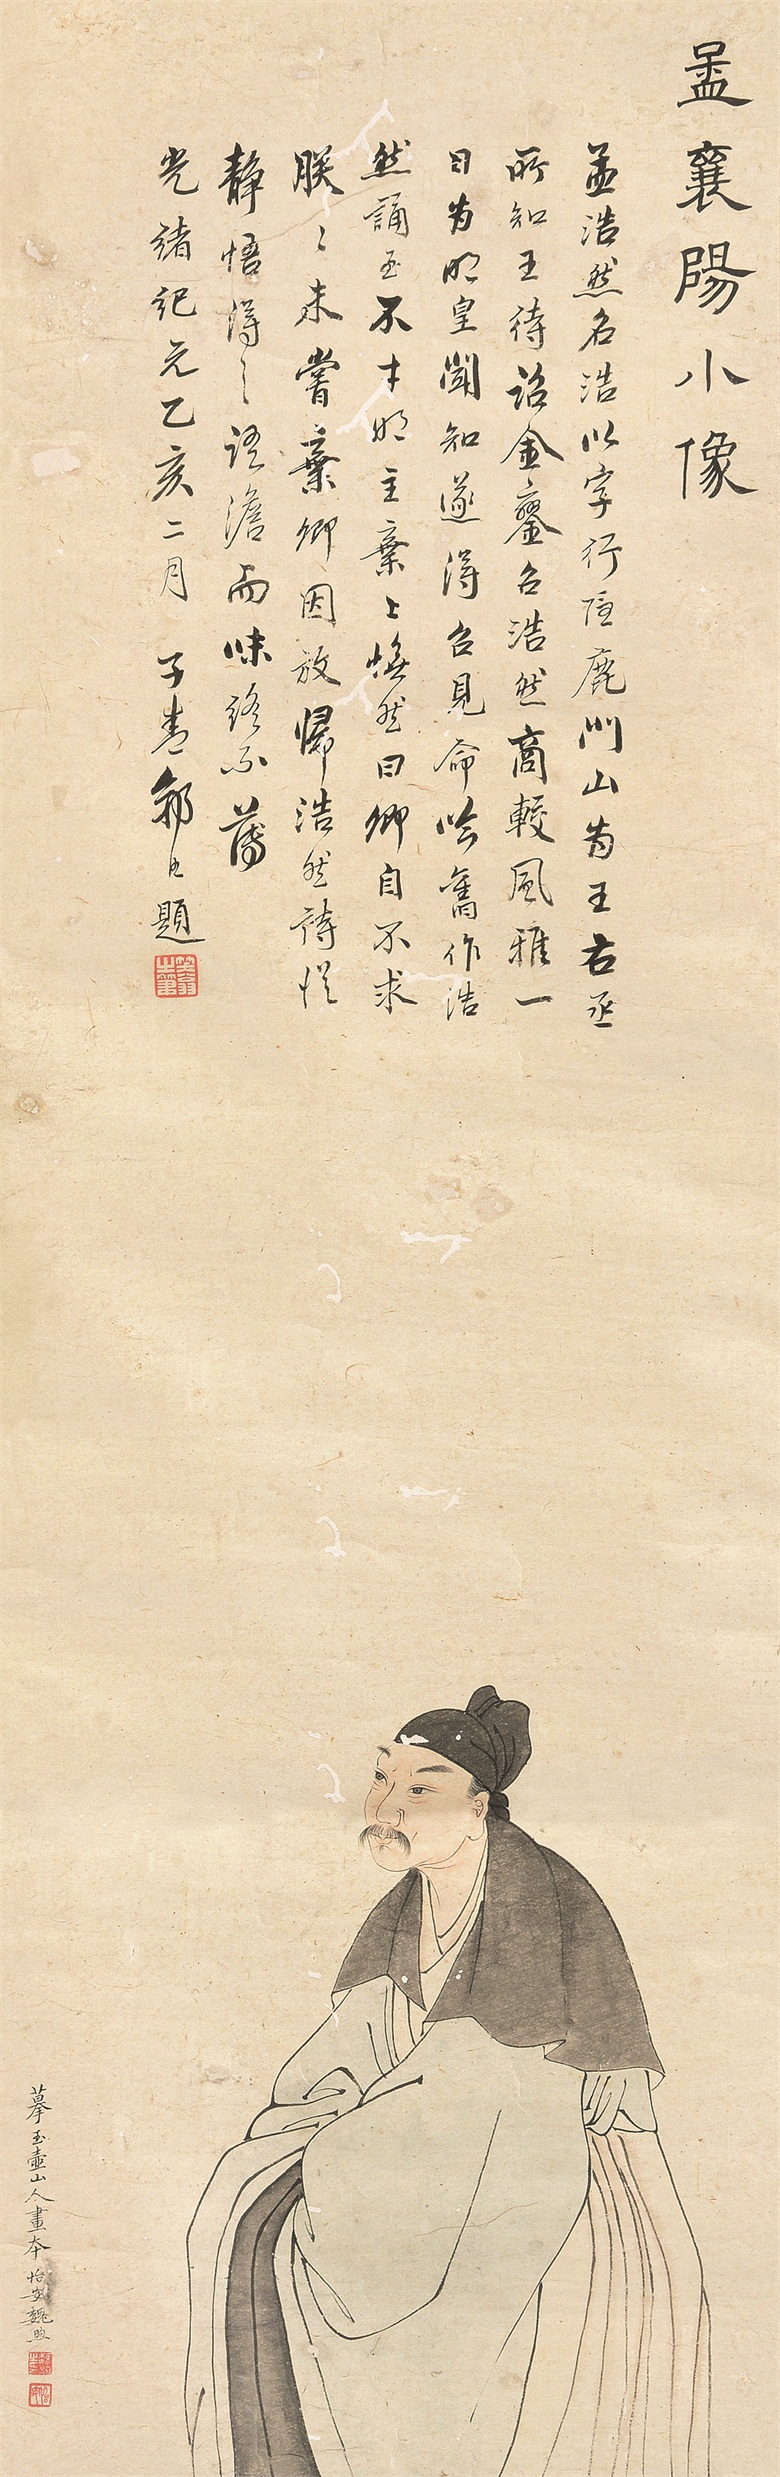 孟襄陽小像
孟浩然名浩以字行隱鹿門山為王右丞
所知王待詔金鑾召浩然商較風雅一
日為明皇聞知遂得召見命吟舊作浩
然誦至不才明主棄上憮然曰卿自不求
朕〻未嘗棄卿因放歸浩然詩從
靜悟得之語澹而味終不薄
光緒紀元乙亥二月 子青 題
摹玉壺山人畫本 怡安魏煦